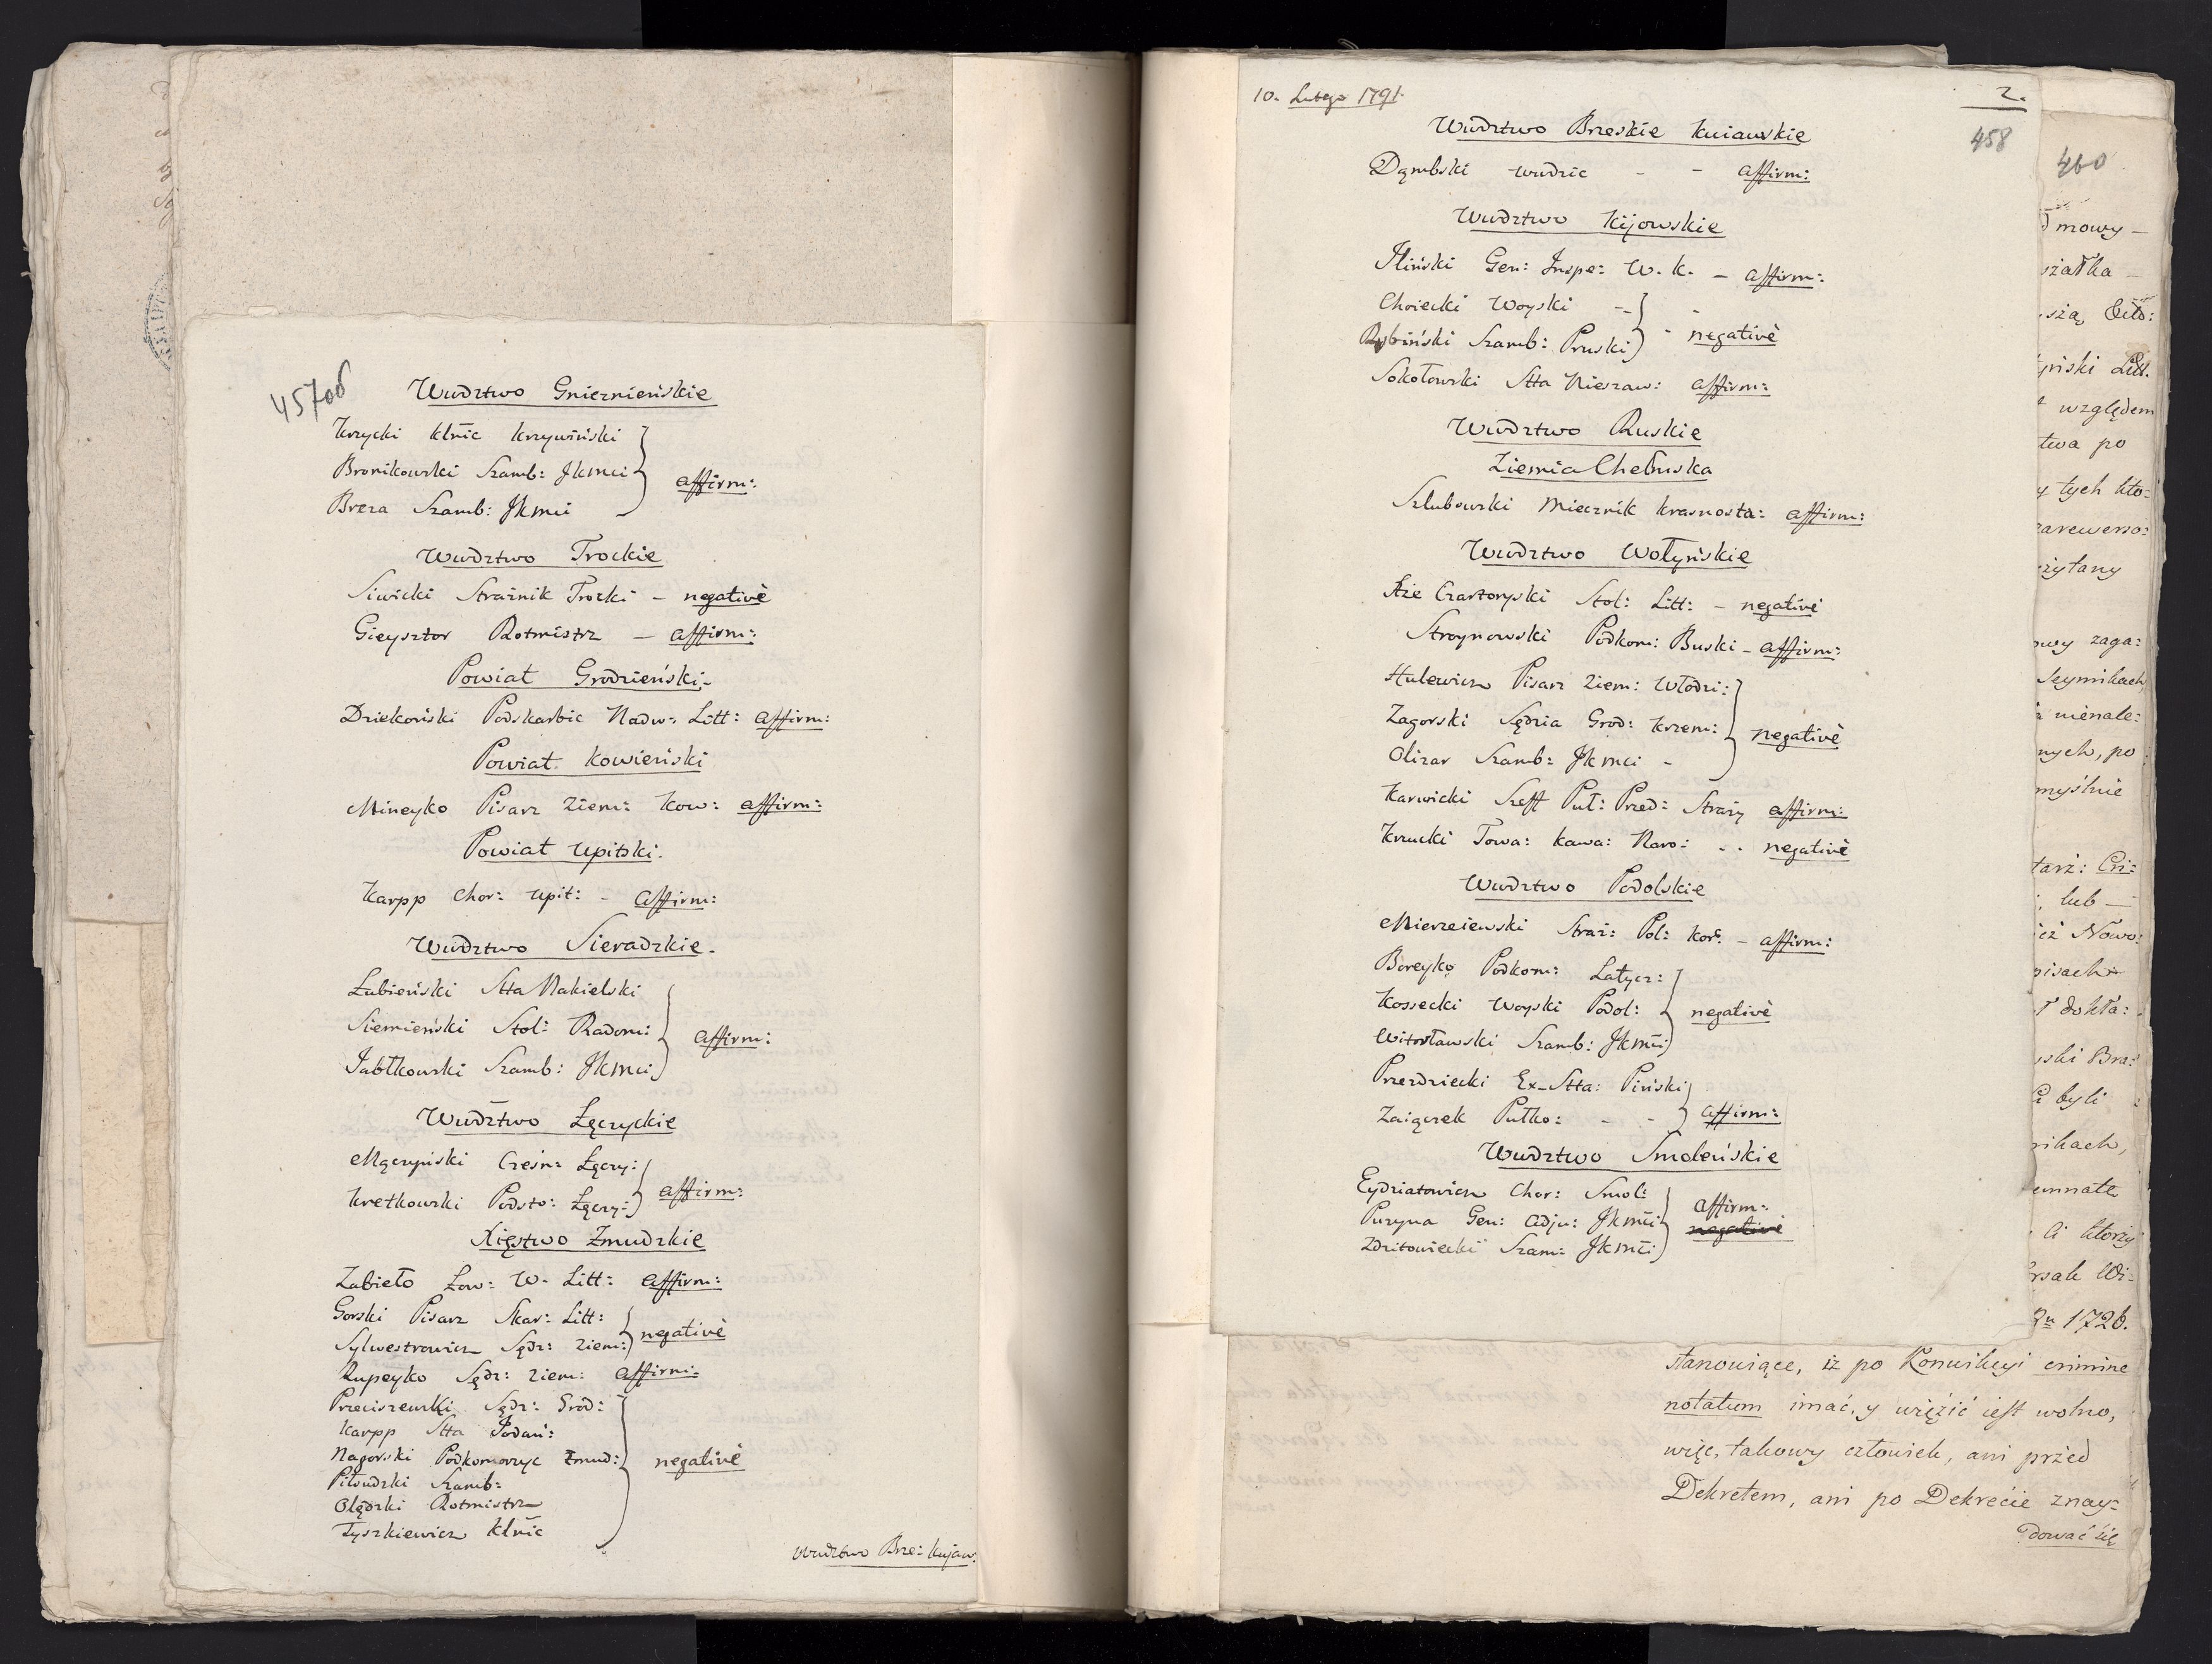 457об
Wwdztwo Gnieznieńskie
Krzycki Kłnic Krzywiński
Bronikowski Szamb: Jkmci
affirm:
Breza Szamb: Jkmci
Wwdztwo Trockie
Siwicki Strażnik Trocki - negativè
Gieysztor Rotmistrz - affirm:
Powiat Grodzieński
Dziekoński Podskarbic Nadw: Litt: affirm:
Powiat Kowieński
Mineyko Pisarz Ziem: Kow: affirm:
Powiat Upitski
Karpp Chor: Upit: - affirm:
Wwdztwo Sieradzkie
Łubieński Stta Nakielski
Siemieński Stol: Radom: affirm:
Jabłkowski Szamb: Jkmci
Wwdztwo Łęczyckie
Mączyński Cześn: Łęczy:
affirm:
Kretkowski Podsto: Łęczy:
Xięstwo Żmudzkie
Zabiełło Łow: W. Litt: affirm:
Gorski Pisarz Skar: Litt:
negativè
Sylwestrowicz Sędz: Ziem:
Rupeyko Sędz: Ziem: affirm:
Przeciszewski Sędz: Grod:
Karpp Stta
Nagorski Podkomorzyc Żmud: negativè
Piłsudzki Szamb:
Olędzki Rotmistrz
Tyszkiewicz Kłnic
Wwdztwo Brze: Kujaw:
10. Lutego 1791.
2.
458
Wwdztwo Brzeskie Kuiawskie
Dąmbski Wwdzic - - affirm:
Wwdztwo Kijowskie
Iliński Gen: Inspe: W. K. - affirm:
Choiecki Woyski -
negativè
Rybiński Szamb: Pruski
Sokołowski Stta Nieszaw: affirm:
Wwdztwo Ruskie
Ziemia Chełmska
Szlubowski Miecznik Krasnosta: affirm:
Wwdztwo Wołyńskie
Xże Czartoryski Stol: Litt: - negativè
Stroynowski Podkom: Buski - affirm:
Hulewicz Pisarz Ziem: Włodzi:
Zagorski Sędzia Grod: Krzem: negativè
Olizar Szamb: Jkmci -
Karwicki Szeff Puł: Przed: Straży affirm:
Krzucki Towa: Kawa: Naro: - - negativè
Wwdztwo Podolskie
Mierzeiewski Straż: Pol: Kor: - affirm:
Boreyko Podkom: Latycz:
Kossecki Woyski Podol: negativè
Witosławski Szamb: Jkmci
Przezdziecki Ex-Stta: Piński
Zaiączek Pułko: - - affirm:
Wwdztwo Smoleńskie
Eydziatowicz Chor: Smol:
affirm:
Puzyna Gen: Adju: Jkmci
negativè
Zdzitowiecki Szam: Jkmci
460
mowy -
szałka -
względem
twa po
y tych kto=
zarewerso=
owy zaga=
Seymikach
nienale=
nych, po
myślnie
lub -
Nowo=
dokła=
byli
nikach,
Ci ktorzy
1726.
stanowiące, iż po Konwikcyi crimine
notatum imać, y więzić iest wolno,
więc, takowy człowiek, ani przed
Dekretem, ani po Dekrecie znay=
dować się